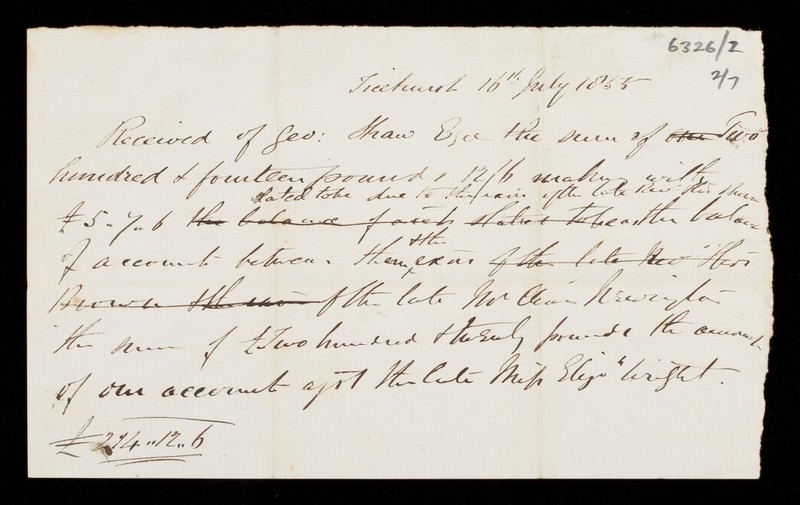 6326/2
2/7
Ticehurst 16th July 1855
Received of Geo: Shaw Esqe the sum of one Two
hundred & fourteen pounds & 12/6 making with
stated to be due to the exors of the late Revd Thos Brown
£5..7..6 the balance of stated to be on the balance
of accounts between them & the exors of the late Revd Thos
Brown & the of the late Mr Newington
the sum of £Two hundred & twenty pounds the amount
of our account agst the late Miss Eliza Wright.
£214..12..6